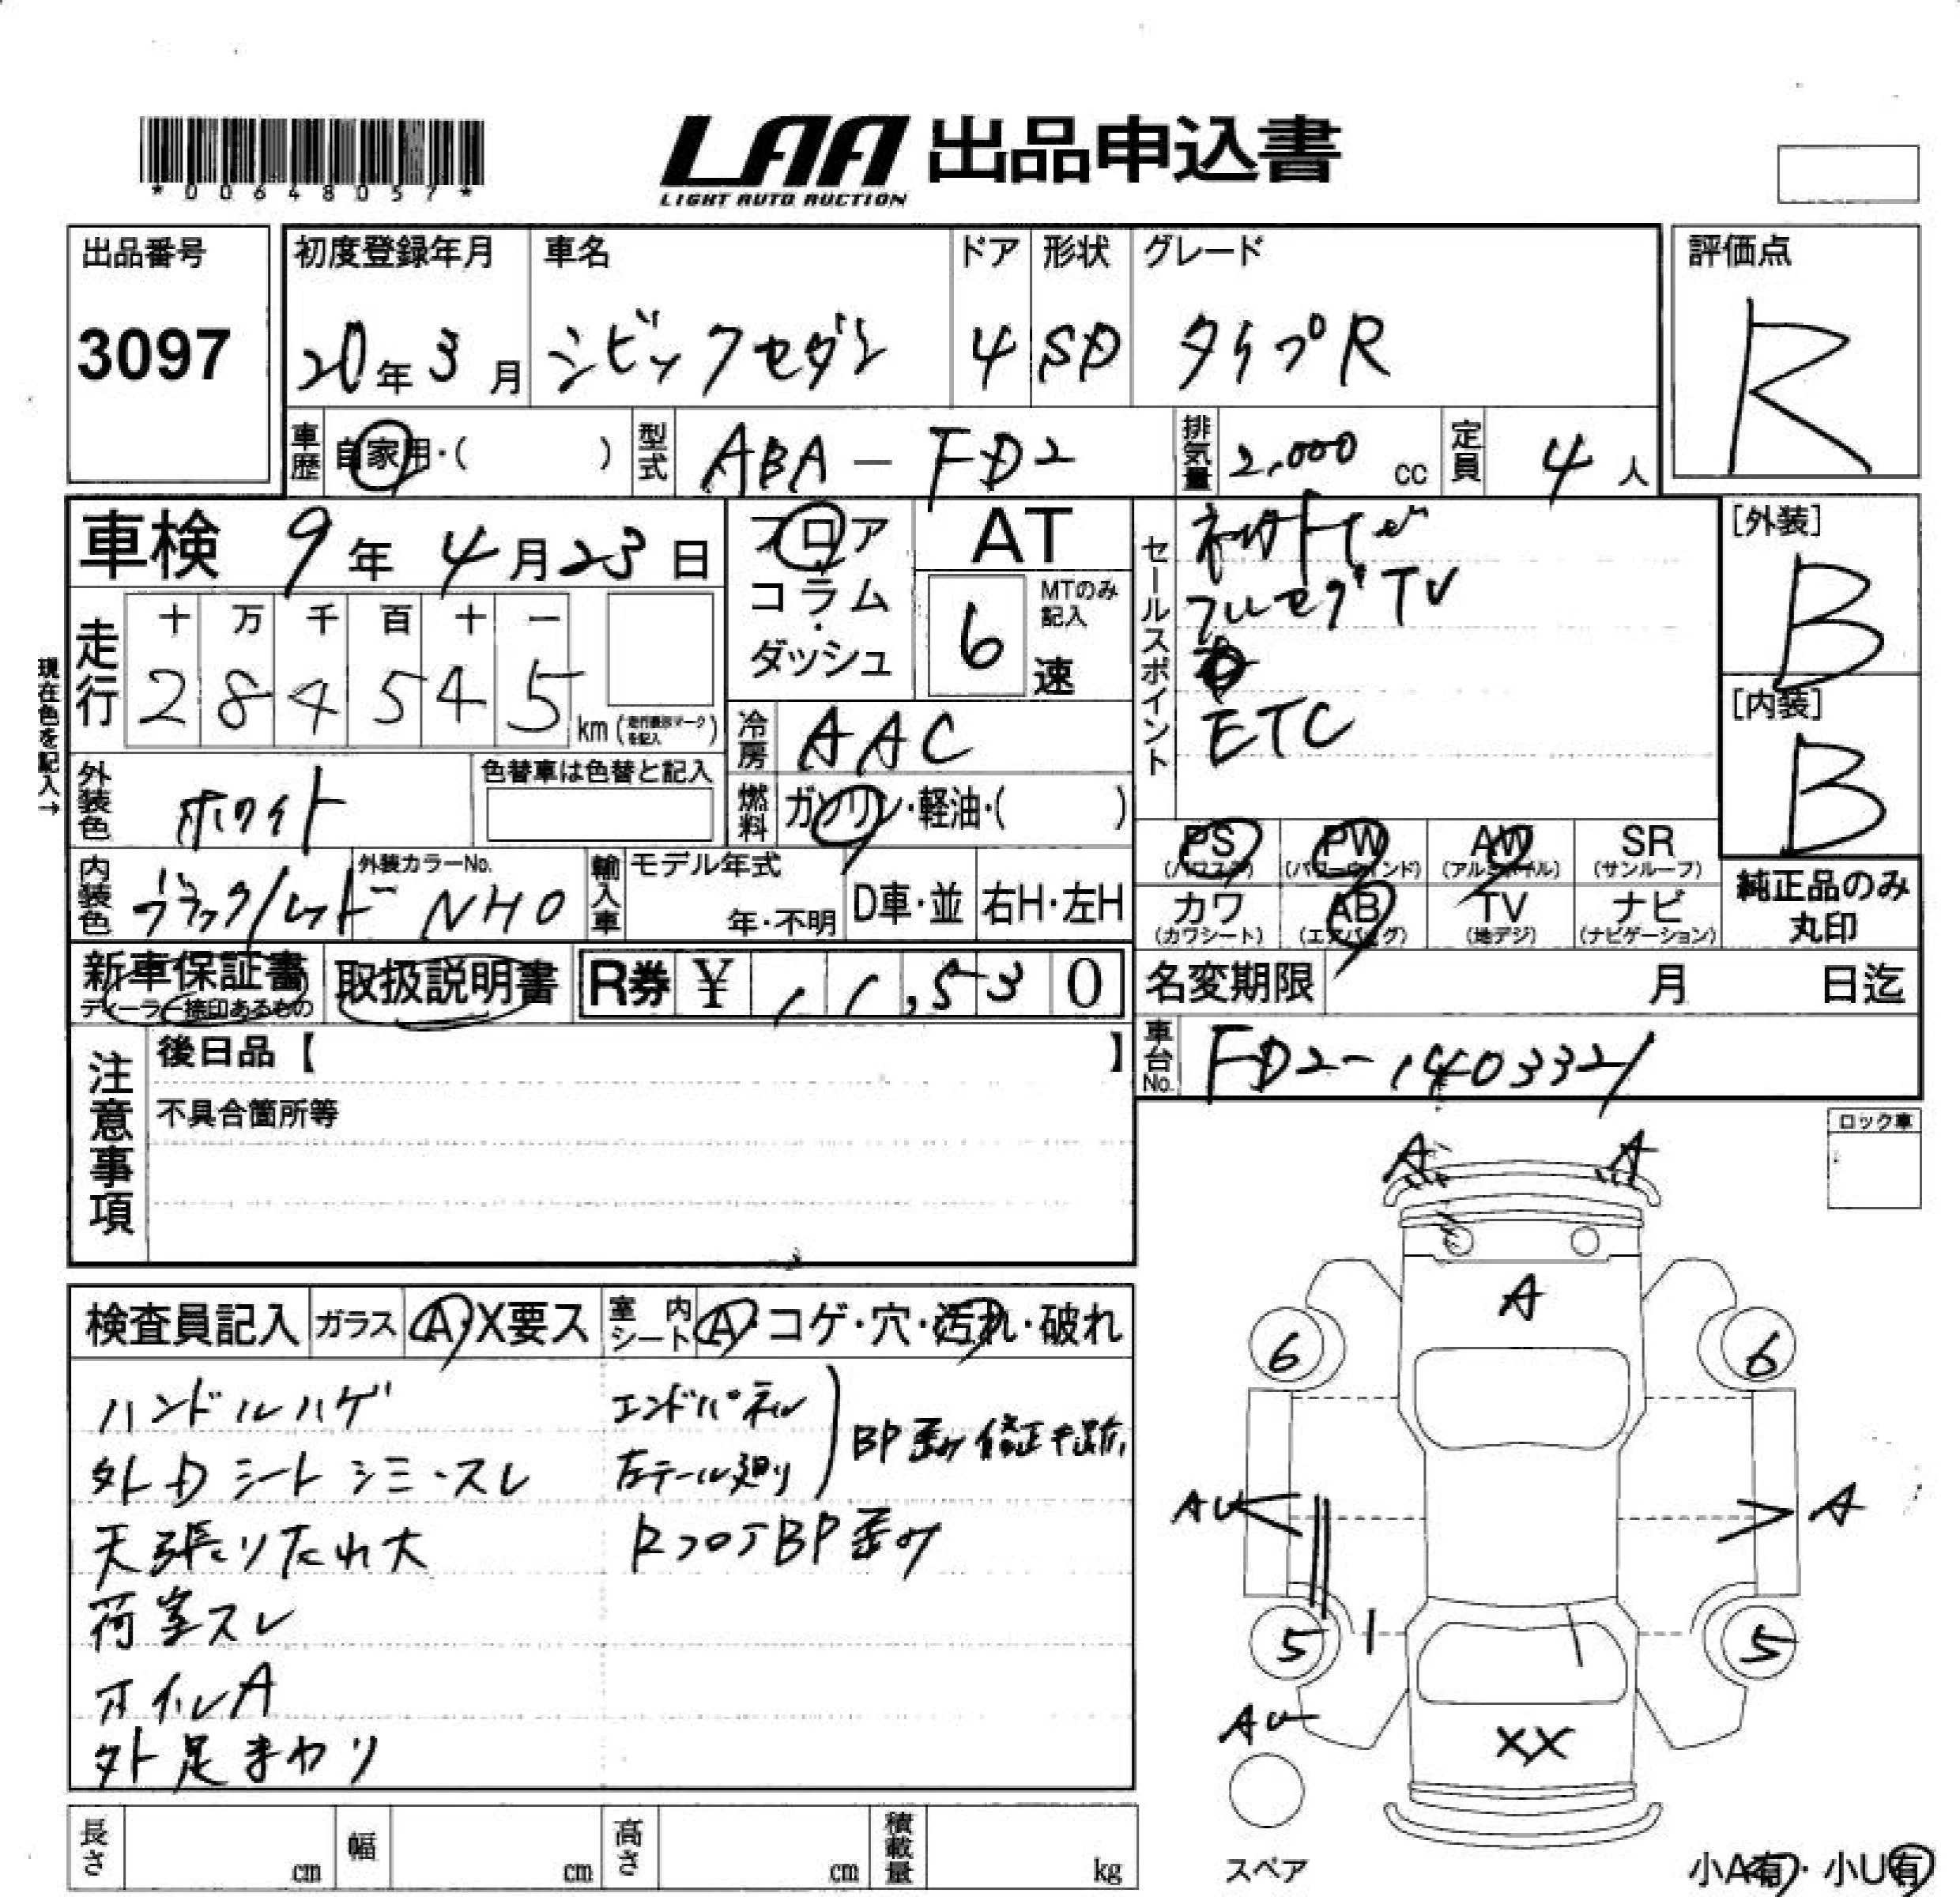 *00648057*
LAA 出品申込書
LIGHT AUTO AUCTION
出品番号
3097
初度登録年月
20年3月
車名
シビックセダン
ドア
4
形状
SD
グレード
タイプR
評価点
R
車歴 自家用・( )
型式 ABA-FD2
排気量 2,000 cc
定員 4人
車検 9年4月23日
フロア
コラム・
ダッシュ
AT
6 MTのみ記入
速
現在色を記入→
走行
十 万 千 百 十 一
2 8 4 5 4 5 km (走行表示マークを記入)
冷房 AAC
燃料 ガソリン・軽油・( )
セールスポイント
フルセグTV
ETC
[外装]
B
[内装]
B
外装色 ホワイト
色替車は色替と記入
内装色 ブラック/レッド
外装カラーNo. NH0
輸入車 モデル年式
年・不明
D車・並 右H・左H
PS (パワステ)
PW (パワーウィンド)
AW (アルミホイル)
SR (サンルーフ)
カワ (カワシート)
AB (エアバッグ)
TV (地デジ)
ナビ (ナビゲーション)
純正品のみ
丸印
新車保証書
ディーラー捺印あるもの
取扱説明書
R券 ¥ 11,530
名変期限 月 日迄
車台No. FD2-1403321
注意事項
後日品【 】
不具合箇所等
ロック車
検査員記入 ガラス A・X要ス
室内シート A・コゲ・穴・汚れ・破れ
ハンドルハゲ
外Dシートシミ・スレ
天張りたれ大
荷室スレ
ホイルA
外足まわり
エンドパネル
左テール廻り
BP歪み修正
RフロアBP歪み
A A
A
6 6
AU A
5 5
AU
XX
スペア
小A有・小U有
長さ cm
幅 cm
高さ cm
積載量 kg